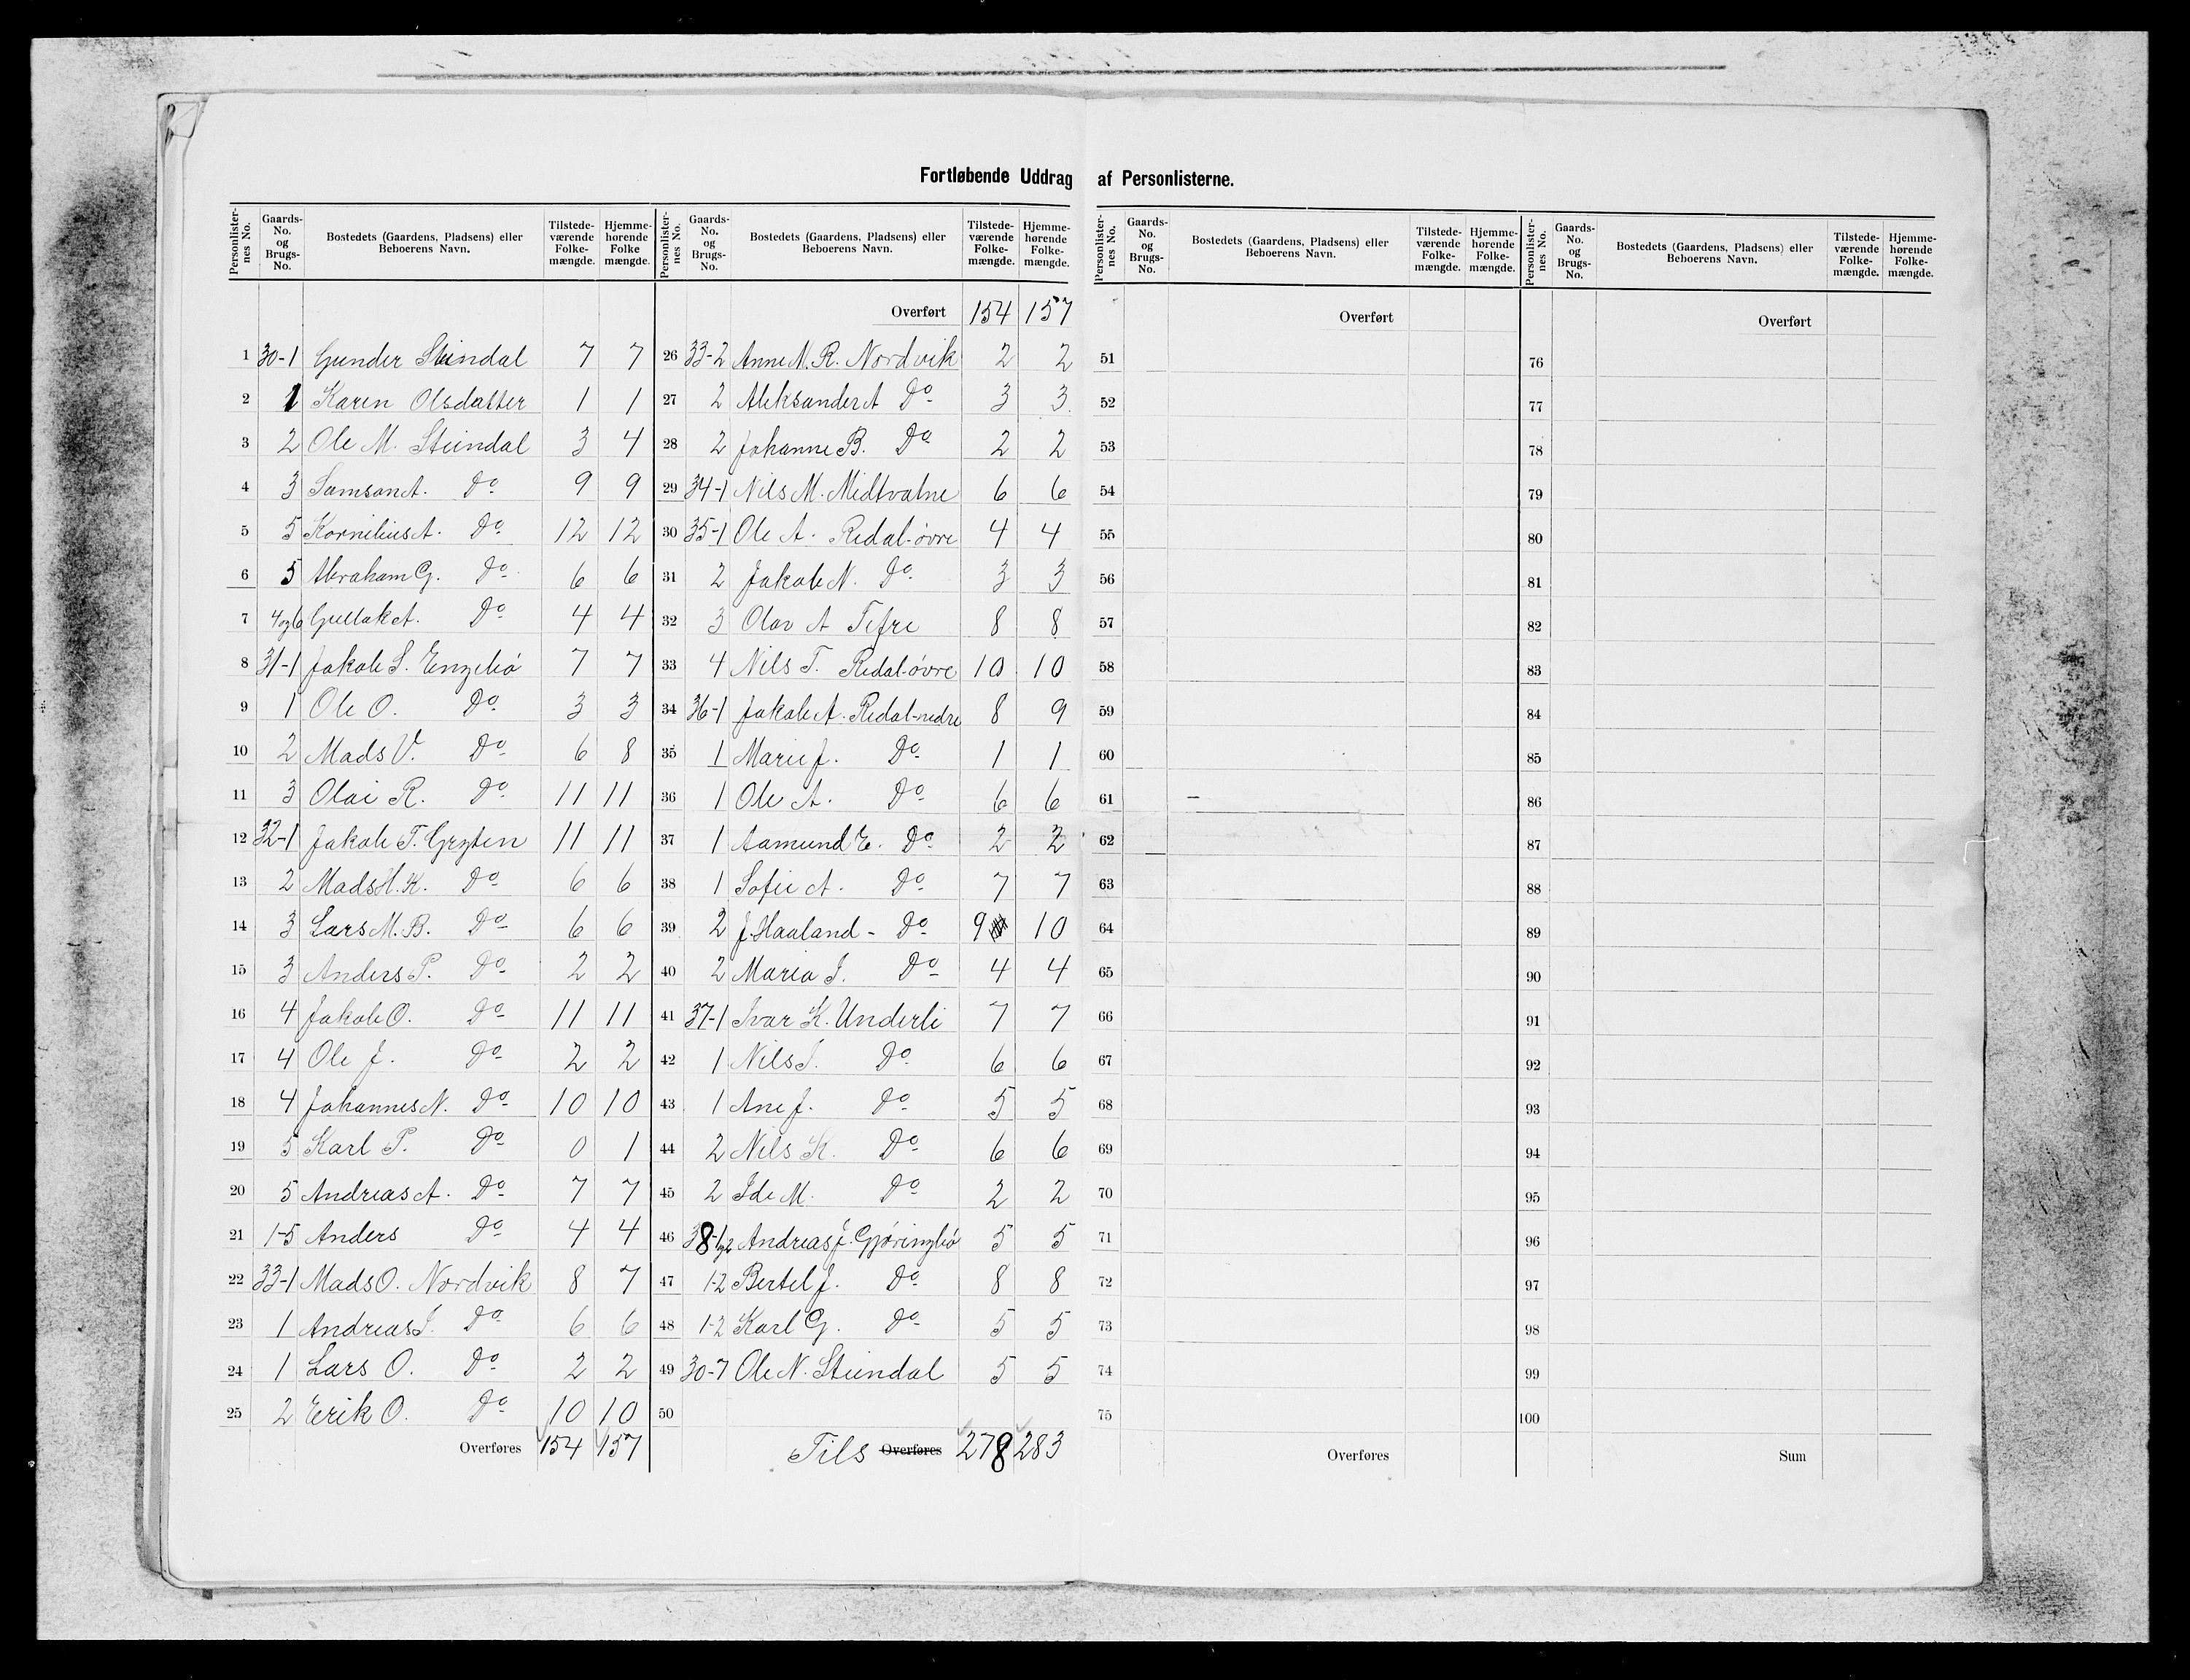 Fortløbende Uddrag af Personlisterne.
Personlister-nes No. | Gaards-No. og Brugs-No. | Bostedets (Gaardens, Pladsens) eller Beboerens Navn. | Tilstede-værende Folke-mængde. | Hjemme-hørende Folke mængde.
1 30-1 Gunder Steindal 7 7
2 1 Karen Olsdatter 1 1
3 2 Ole M. Steindal 3 4
4 3 Samson A. Do 9 9
5 5 Kornelius A. Do 12 12
6 5 Abraham G. Do 6 6
7 4og6 Gullak A. Do 4 4
8 31-1 Jakob S. Engebø 7 7
9 1 Ole O. Do 3 3
10 2 Mads V. Do 6 8
11 3 Olai R. Do 11 11
12 32-1 Jakob T. Gryten 11 11
13 2 Mads H. K. Do 6 6
14 3 Lars M. B. Do 6 6
15 3 Anders P. Do 2 2
16 4 Jakob O. Do 11 11
17 4 Ole J. Do 2 2
18 4 Johannes N. Do 10 10
19 5 Karl P. Do 0 1
20 5 Andreas A. Do 7 7
21 1-5 Anders Do 4 4
22 33-1 Mads O. Nordvik 8 7
23 1 Andreas I. Do 6 6
24 1 Lars O. Do 2 2
25 2 Erik O. Do 10 10
Overføres 154 157
Personlister-nes No. | Gaards-No. og Brugs-No. | Bostedets (Gaardens, Pladsens) eller Beboerens Navn. | Tilstede-værende Folke-mængde. | Hjemme-hørende Folke-mængde.
Overført 154 157
26 33-2 Anne M. R. Nordvik 2 2
27 2 Aleksander A Do 3 3
28 2 Johanne B. Do 2 2
29 34-1 Nils M. Midtvatne 6 6
30 35-1 Ole A. Redal-øvre 4 4
31 2 Jakob N. Do 3 3
32 3 Olav A Tefre 8 8
33 4 Nils T. Redal-øvre 10 10
34 36-1 Jakob A. Redal-nedre 8 9
35 1 Marie J. Do 1 1
36 1 Ole A. Do 6 6
37 1 Aamund E. Do 2 2
38 1 Sofie A. Do 7 7
39 2 J. Haaland - Do 9 10
40 2 Maria I. Do 4 4
41 37-1 Ivar K. Underli 7 7
42 1 Nils I. Do 6 6
43 1 Ane J. Do 5 5
44 2 Nils K. Do 6 6
45 2 Ide M. Do 2 2
46 38-1og2 Andreas J. Gjøringbø 5 5
47 1-2 Bertel J. Do 8 8
48 1-2 Karl G. Do 5 5
49 30-7 Ole N. Steindal 5 5
50
Tils Overføres 278 283
Personlister-nes No. | Gaards-No. og Brugs-No. | Bostedets (Gaardens, Pladsens) eller Beboerens Navn. | Tilstede-værende Folke-mængde. | Hjemme-hørende Folke-mængde.
Overført
51
52
53
54
55
56
57
58
59
60
61
62
63
64
65
66
67
68
69
70
71
72
73
74
75
Overføres
Personlister-nes No. | Gaards-No. og Brugs-No. | Bostedets (Gaardens, Pladsens) eller Beboerens Navn. | Tilstede-værende Folke-mængde. | Hjemme-hørende Folke-mængde.
Overført
76
77
78
79
80
81
82
83
84
85
86
87
88
89
90
91
92
93
94
95
96
97
98
99
100
Sum